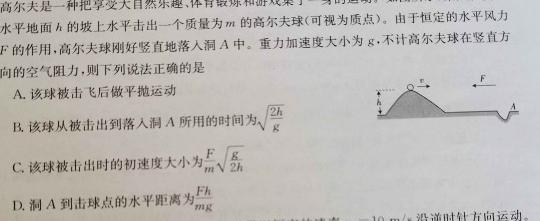 高尔夫是一种把享受大自然乐趣、体育锻炼和游戏集于一身的运动。
水平地面 h 的坡上水平击出一个质量为 m 的高尔夫球(可视为质点)。由于恒定的水平风力
F 的作用,高尔夫球刚好竖直地落入洞 A 中。重力加速度大小为 g,不计高尔夫球在竖直方
向的空气阻力,则下列说法正确的是
A. 该球被击飞后做平抛运动
B. 该球从被击出到落入洞 A 所用的时间为√(2h/g)
C. 该球被击出时的初速度大小为F/m √(g/2h)
D. 洞 A 到击球点的水平距离为Fh/mg
v
F
h
A
=10 m/s 沿逆时针方向运动。